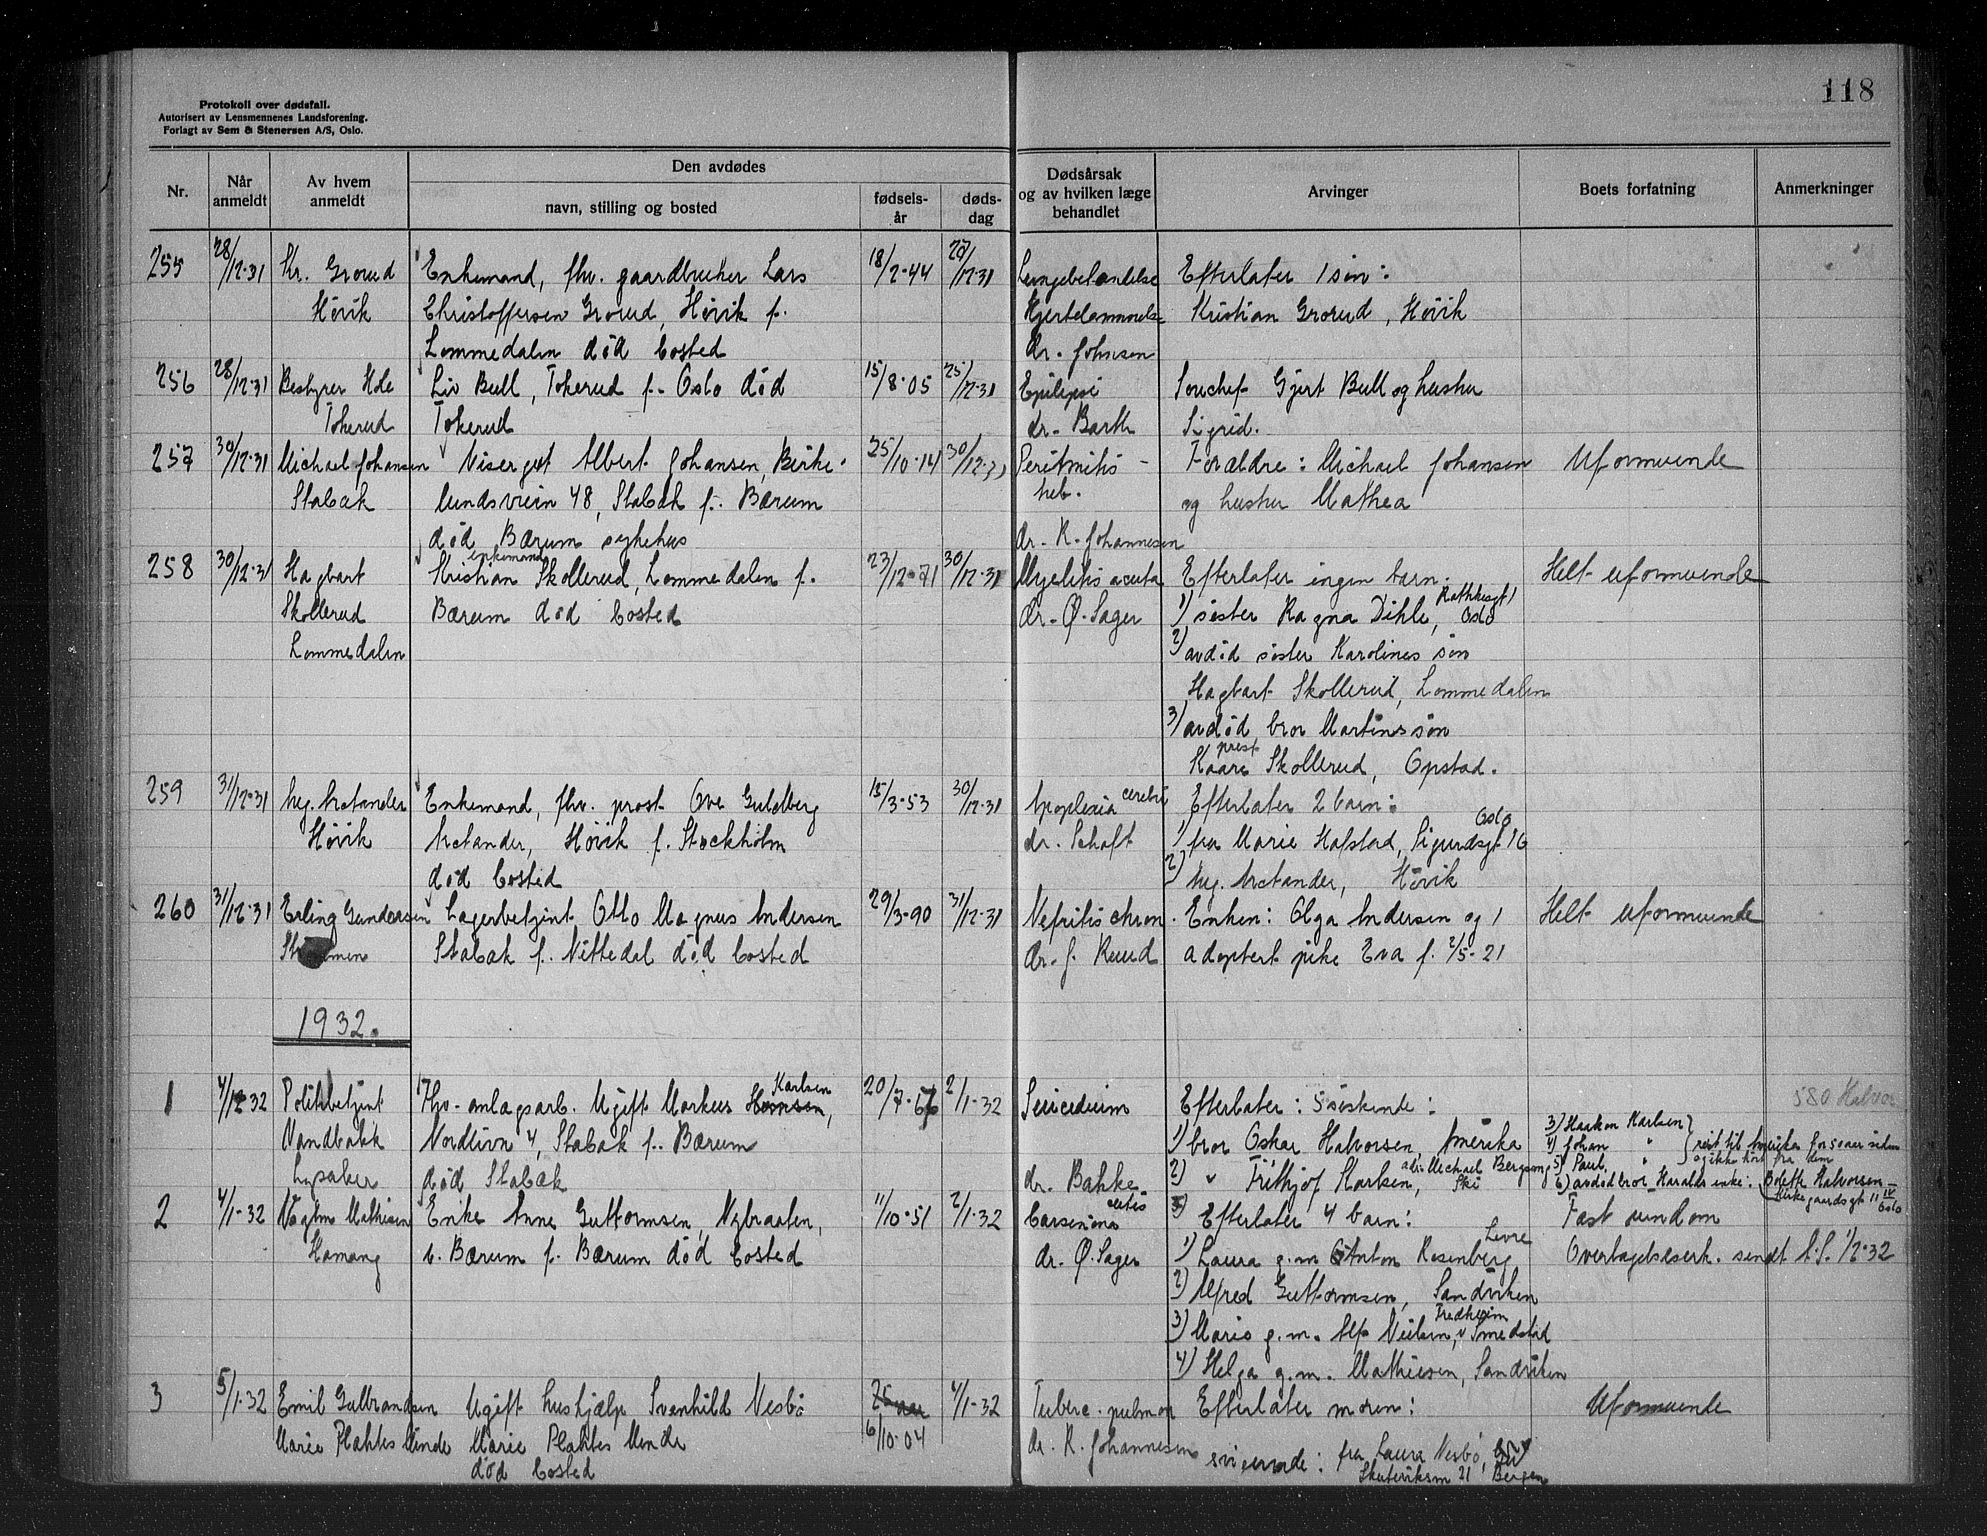 118
Protokoll over dødsfall.
Autorisert av Lensmennenes Landsforening.
Forlagt av Sem & Stenersen A/S, Oslo.
Nr.
Når anmeldt
Av hvem anmeldt
Den avdødes
navn, stilling og bosted
fødsels-år
døds-dag
Dødsårsak og av hvilken læge behandlet
Arvinger
Boets forfatning
Anmerkninger
255 28/12-31 Kr. Grorud Enkemand, fhv. gaardbruker Lars 18/2-44 27/12-31 Lungebetændelse Efterlater 1 søn:
Høvik Christoffersen Grorud, Høvik f. Hjertelammelse Kristian Grorud, Høvik
Lommedalen död bosted dr. Johnsen
256 28/12-31 Bestyrer Hole Liv Bull, Tokerud f. Oslo död 15/8-05 25/12-31 Epilepsi Souchef Gjert Bull og hustru
Tokerud Tokerud dr. Barth Sigrid.
257 30/12-31 Michael Johansen Visergut Albert Johansen, Birke- 25/10-14 30/12-31 Peritonitis - Forældre: Michael Johansen Uformuende
Stabæk lundsveien 48, Stabæk f. Bærum tub. og hustru Mathea
död Bærum sykehus dr. R. Johannesen
258 30/12-31 Hagbart enkemand Kristian Skollerud, Lommedalen f. 23/12-71 30/12-31 Myelitis acuta Efterlater ingen barn. Helt uformuende
Skollerud Bærum död bosted dr. Ø. Sager 1) søster Ragna Dihle, Rathkesgt 1 Oslo
Lommedalen 2) avdöd søster Karolines søn
Hagbart Skollerud, Lommedalen
3) avdöd bror Martins søn
prest
Kaare Skollerud, Opstad.
259 31/12-31 Ing. Arctander Enkemand, fhv. prost Ove Guldberg 15/3-53 30/12-31 Apoplexia cerebri Efterlater 2 barn:
Høvik Arctander, Høvik f. Stockholm dr. Schaft 1) fru Marie Hofstad, Sigurdsgt 16 Oslo
död bosted 2) Ing. Arctander, Høvik
260 31/12-31 Erling Gundersen Lagerbetjent Otto Magnus Andersen 29/3-90 31/12-31 Nefritis chron. Enken: Olga Andersen og 1 Helt uformuende
Stabæk f. Nittedal död bosted dr. J. Ruud adoptert pike Eva f. 2/5-21
1932.
1 4/12-32 Politibetjent Fhv. anlagsarb. Ugift Markus Hansen, Karlsen 20/7-67 2/1-32 Suicidium Efterlater: 5 søskende: 580 Halvor
Nordvn 4, Stabæk f. Bærum 1) bror Oskar Halvorsen, Amerika
Lysaker död Stabæk dr. Bakke 2) " Frithjof Karlsen, adr. Michael Bergsong Ski
3) Haakon Karlsen
4) Johan "
5) Paul, "
reist til Amerika for 50 aar siden
og ikke hört fra dem
6) avdöd bror Haralds enke: Bolette Halvorsen
Kirkegaardsgt 11 IV Oslo
2 4/1-32 Mathisen Enke Anne Guttormsen, Nybraaten, 11/10-51 2/1-32 Carsenoma cutis Efterlater 4 barn: Fast eiendom
Hamang v. Bærum f. Bærum död bosted dr. Ø. Sager 1) Laura g.m. Anton Rosenberg Levre Overtagelseserk. sendt S.S. 1/2-32
2) Alfred Guttormsen, Sandviken
3) Marie g.m. Alf Nielsen, Fredheim v Smedstad
4) Helga g.m. Mathiesen, Sandviken
3 5/1-32 Emil Gulbrandsen Ugift hushjælp Svanhild Nesbö 25 aar 4/1-32 Tuberc. pulmon Efterlater moren: Uformuende
Marie Plahtes Minde Marie Plahtes Minde 6/10-04 dr. R. Johannesen fru Laura Nesbö,
död bosted Skuteviksvn 21 Bergen